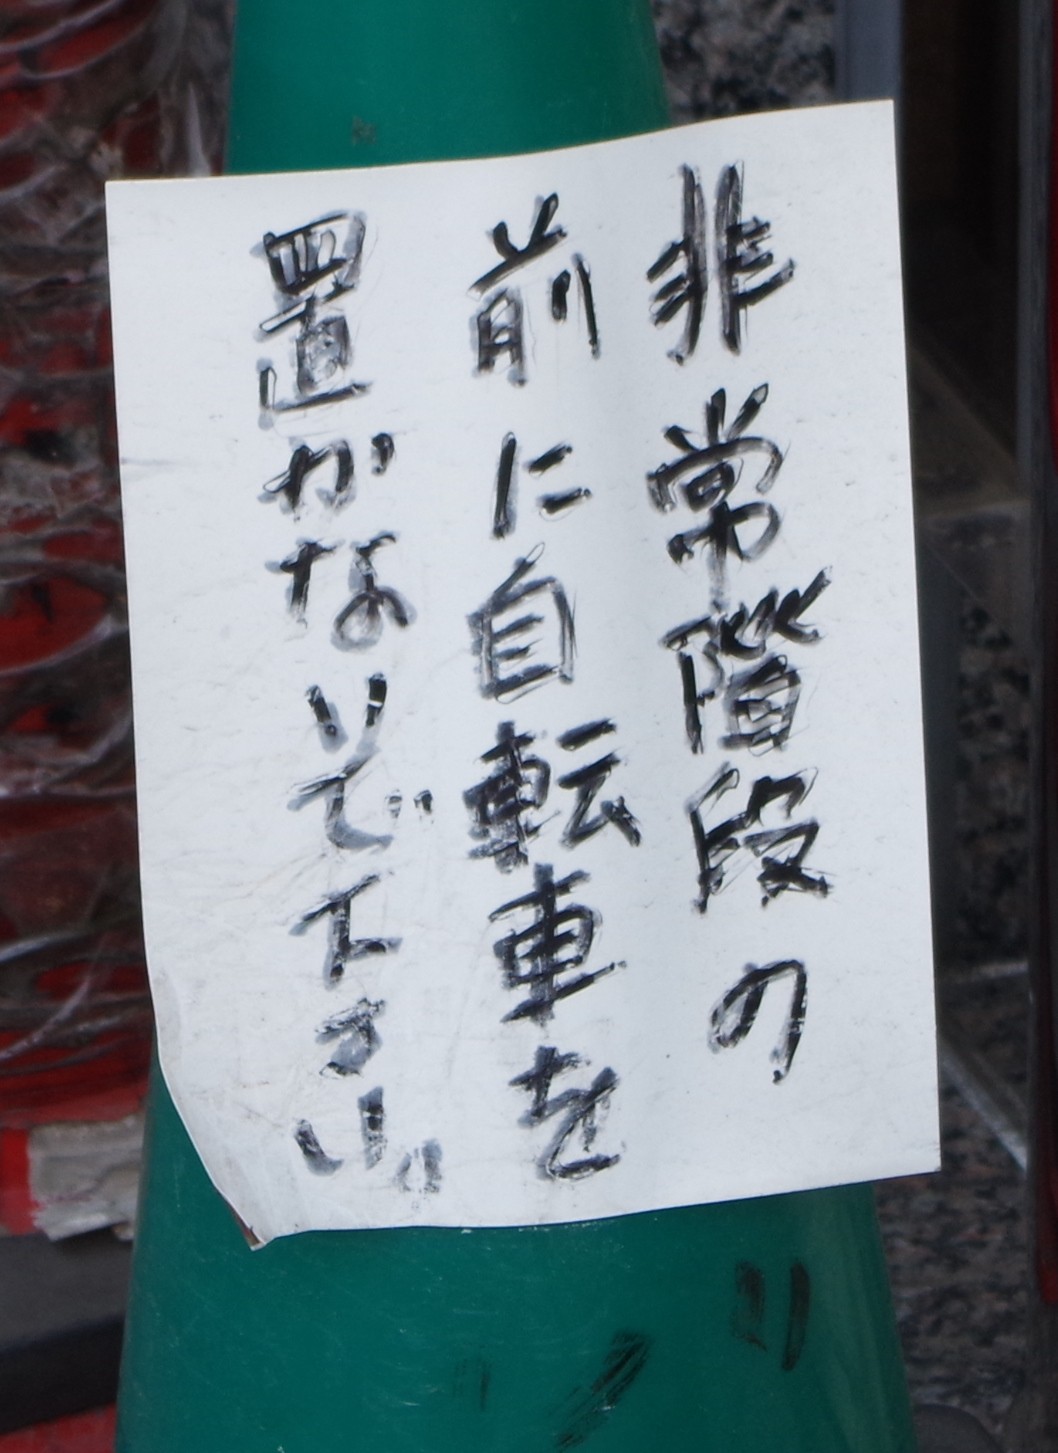 非常階段の
前に自転車を
置かないで下さい。